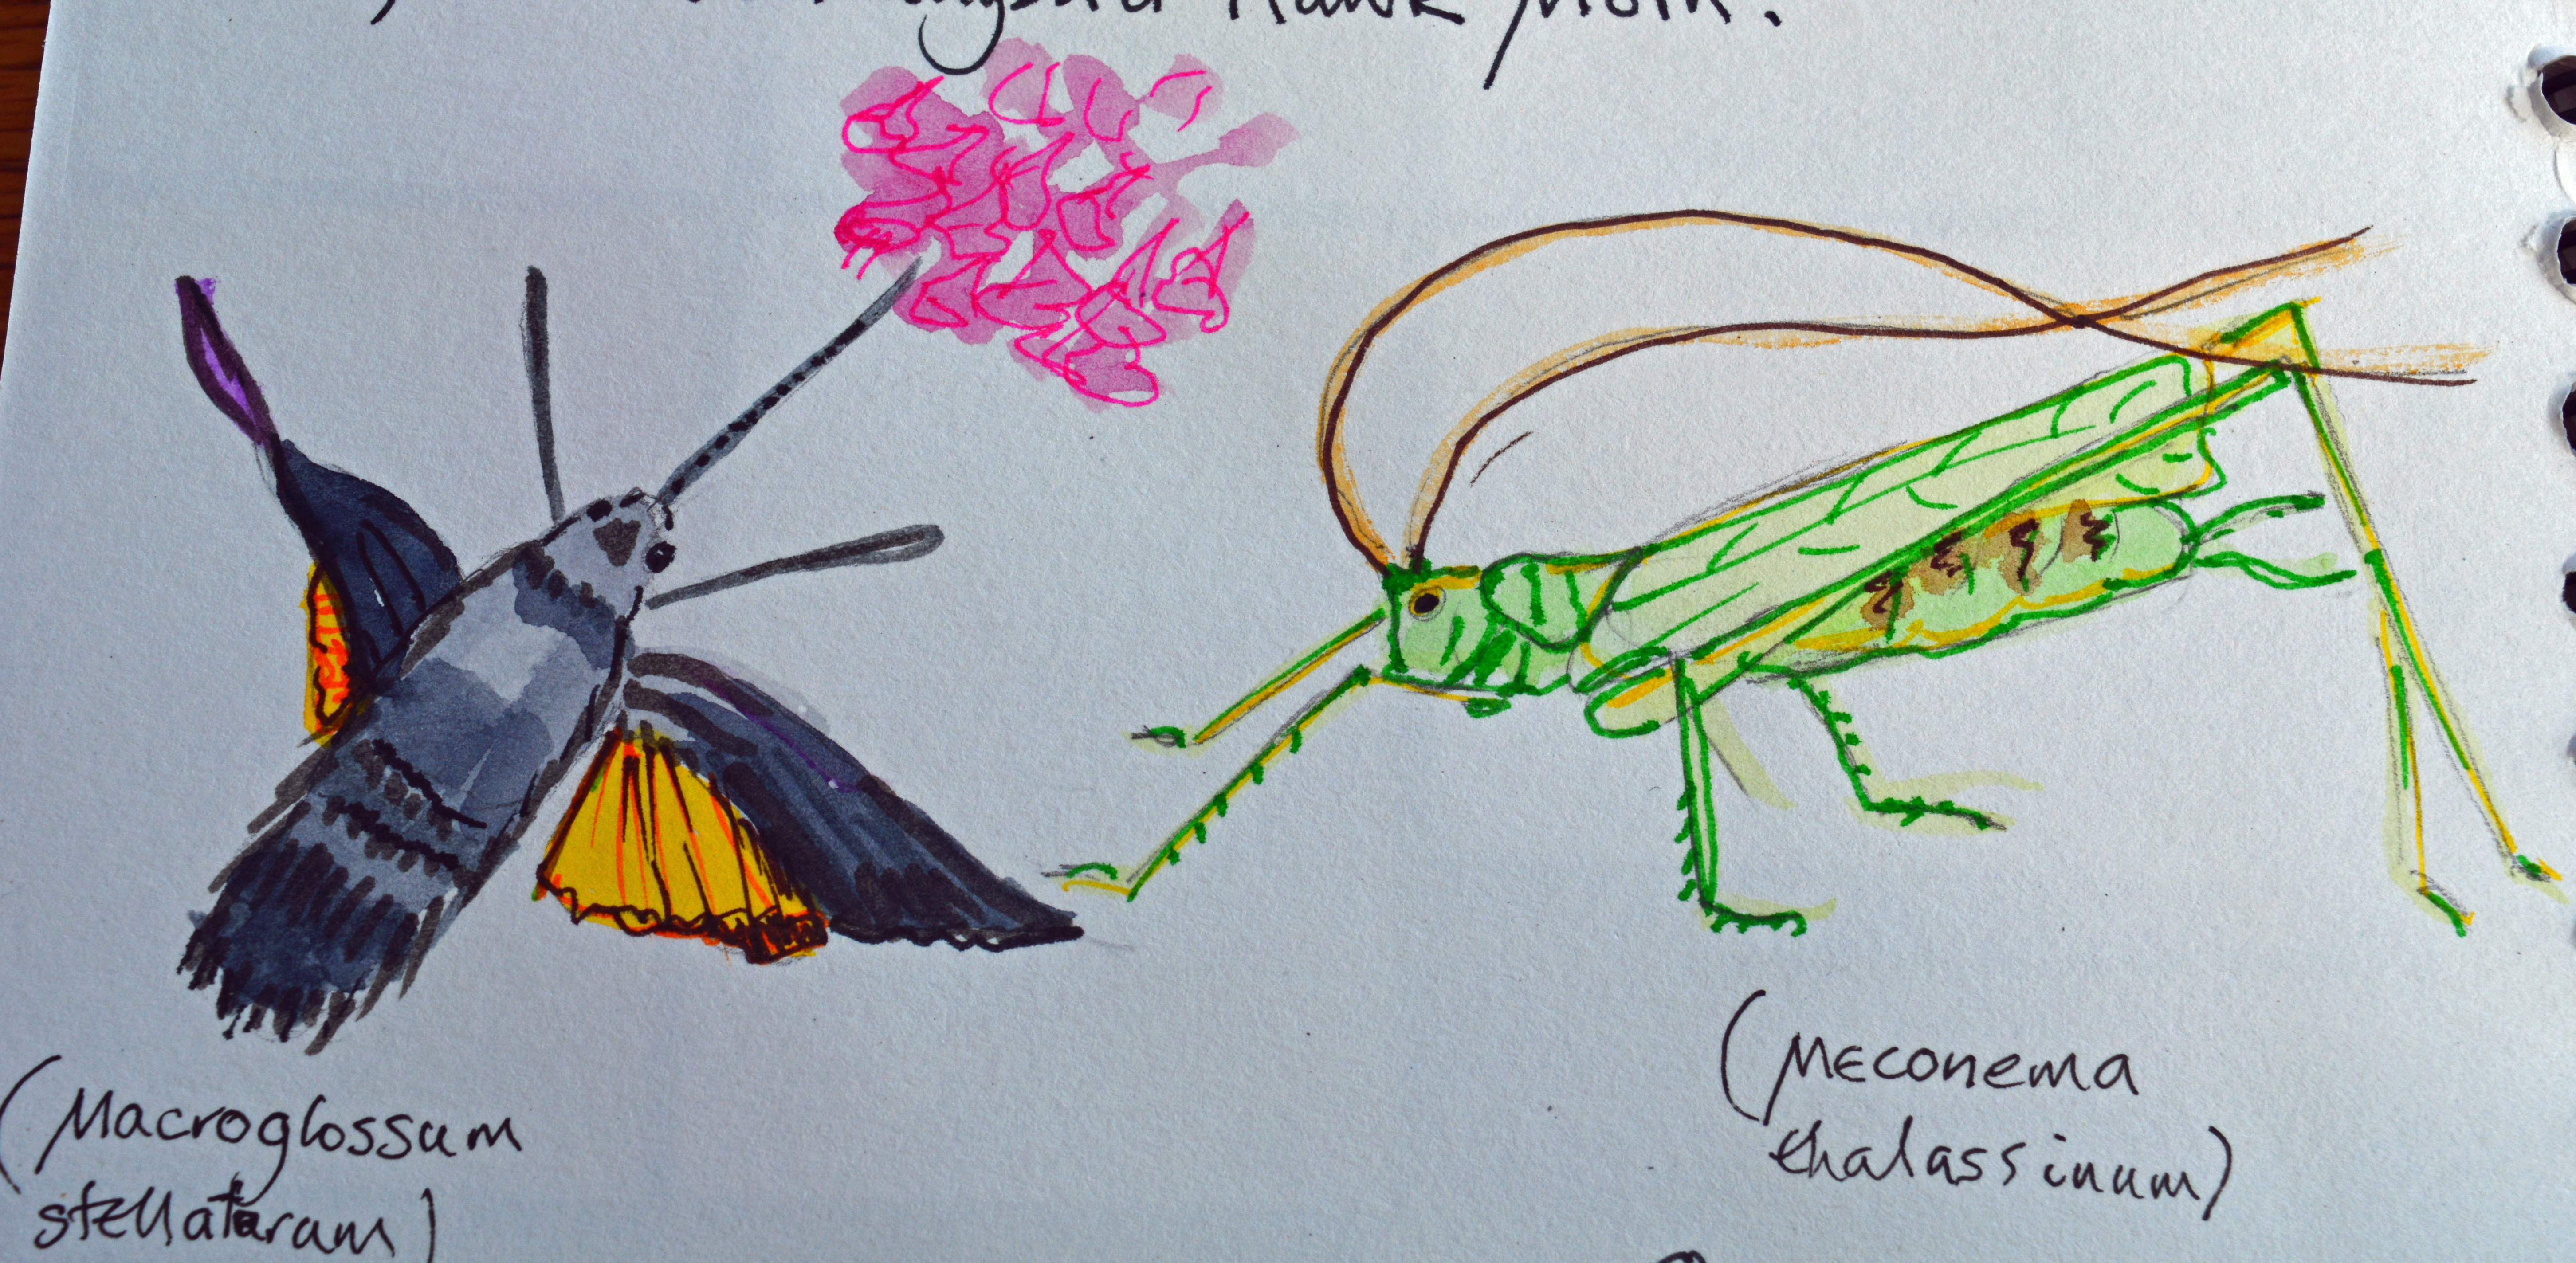 Hawk Moth.
(Macroglossum
stellatarum)
(Meconema
thalassinum)